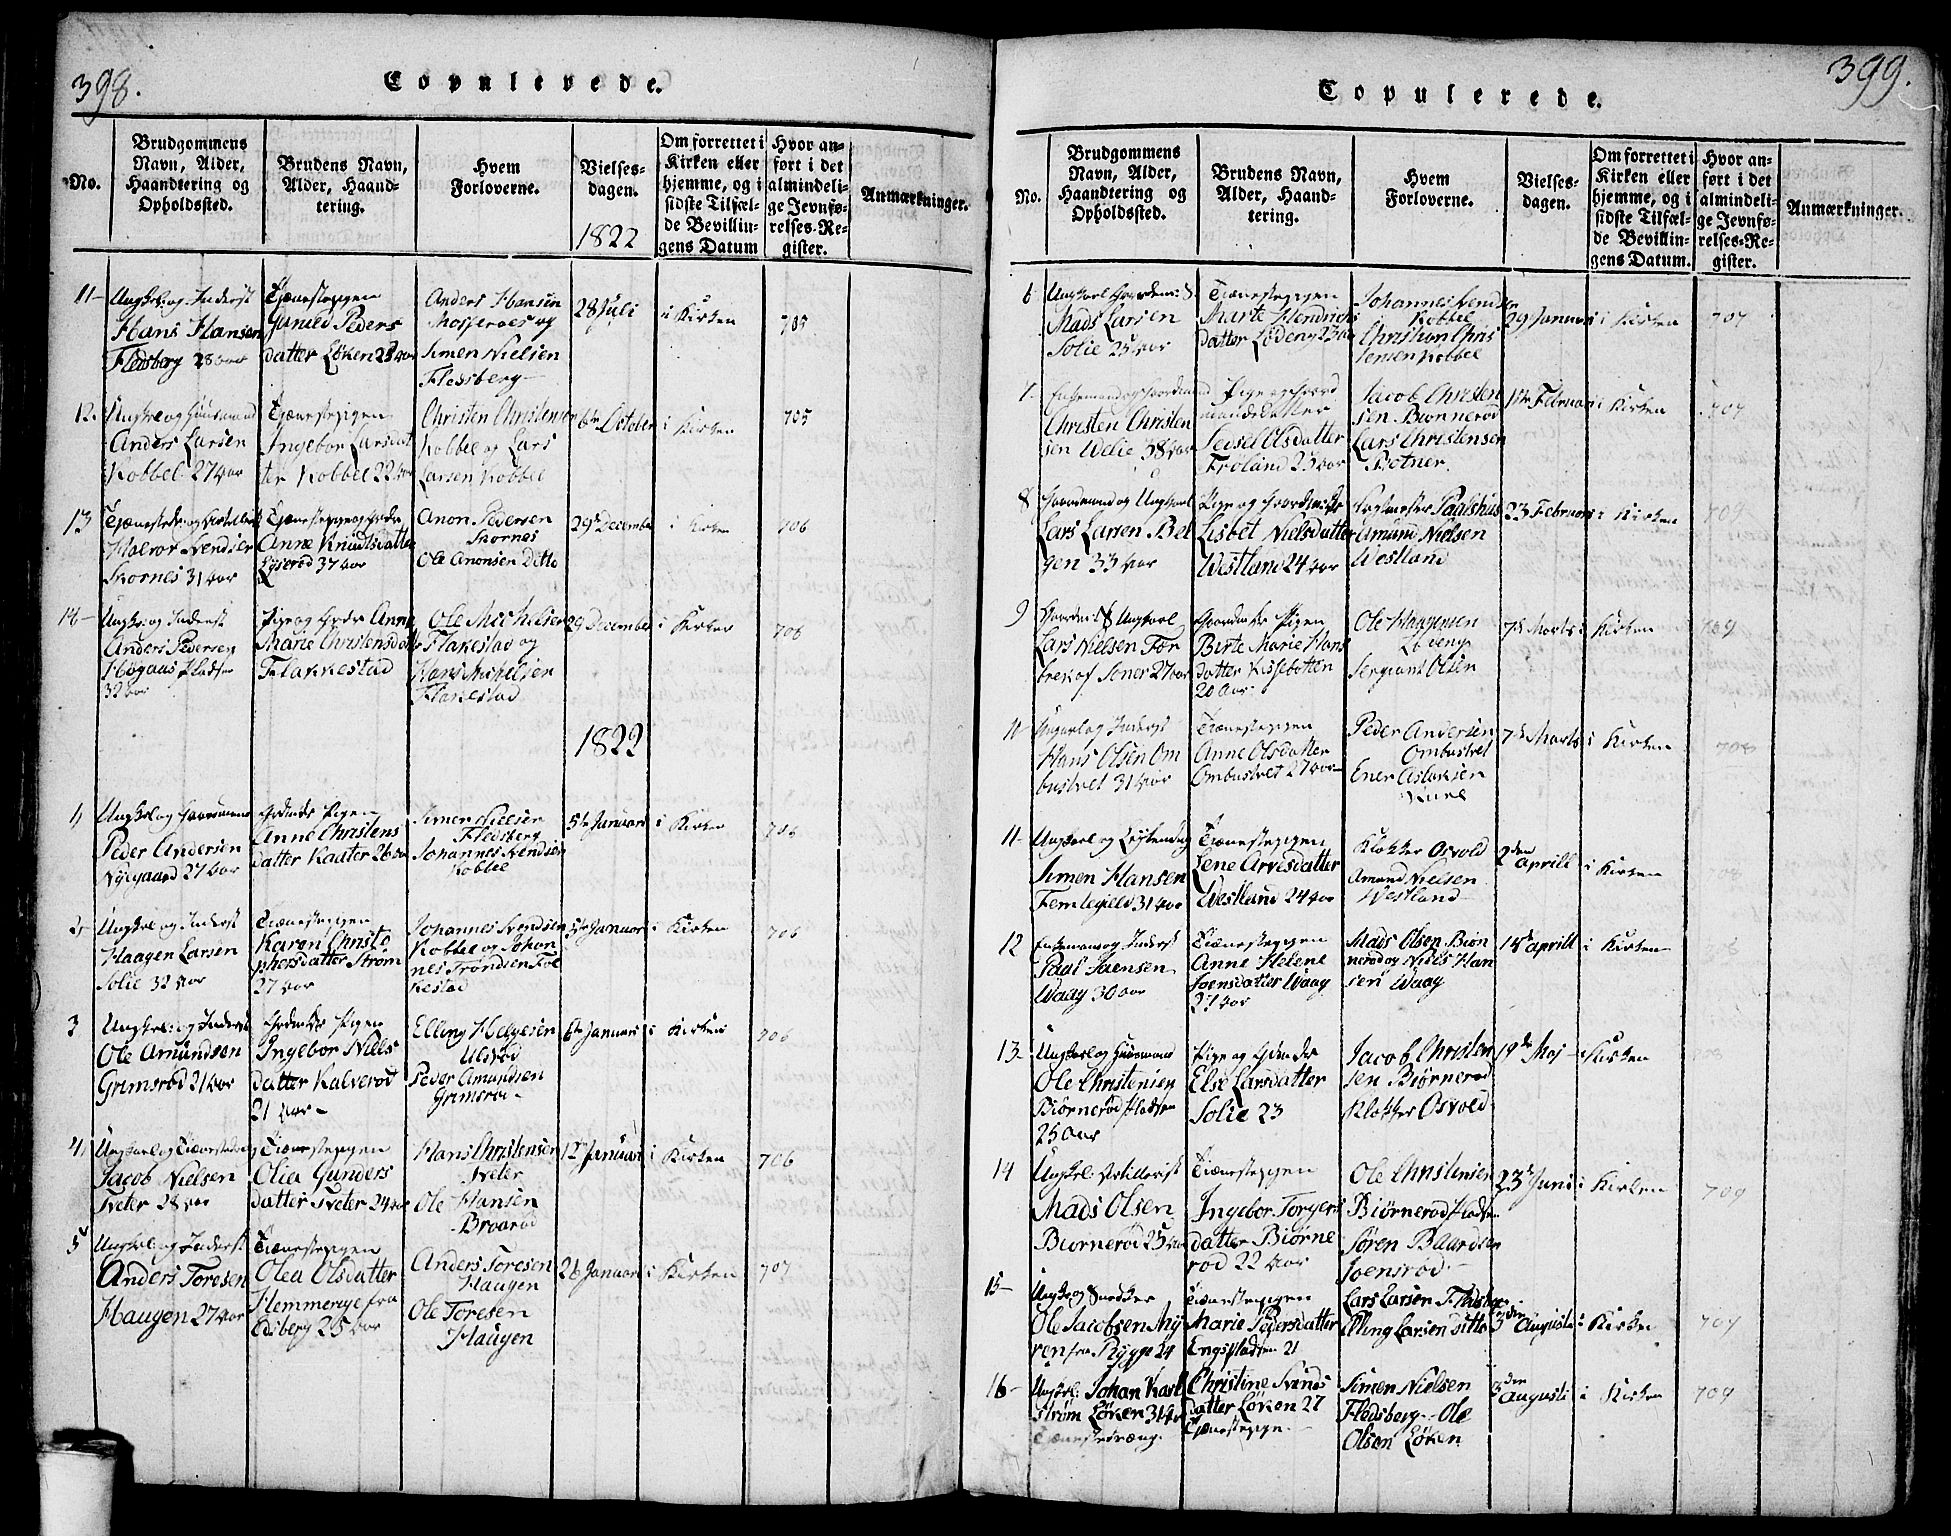 398.
Copulerede.
No.
Brudgommens
Navn, Alder,
Haandtering og
Opholdssted.
Brudens Navn,
Alder, Haand-
tering.
Hvem
Forloverne.
Vielses-
dagen.
1822
Om forrettet i
Kirken eller
hjemme, og i
sidste Tilfæl-
de Bevillin-
gens Datum
Hvor an-
ført i det
almindeli-
ge Jevnfø-
relses-Re-
gister.
Anmærkninger.
11-
Ungkl. og Inderst
Hans Hansen
Fledsberg 28 aar
Tjenestepigen
Gunild Peders
datter Løken
Anders Hansen
og
Simen Nielsen
Fledsberg
28 Juli
i Kirken
705
12.
Ungkl og Huusmand
Anders Larsen
Kobbel 27 aar
Tjenestepigen
Ingebor Larsdat
ter Kobbel 22 aar
Christen Christensen
Kobbel og Lars
Larsen Kobbel
6te October
i Kirken
705
13
Halvor Svendsen
Skornes 31 aar
Anne Knudtsdatter
37 aar
Anon Pedersen
Skornes
Ole Anonsen Ditto
29 December
i Kirken
706
14-
Ungkl og Inderst
Anders Pedersen
32 aar
Pige og Anne
Marie Christensdatter
Flakkestad
Ole Michelsen
Flakestad og
Hans Michelsen
Flakestad
29 December
i Kirken
706
1822
1
Ungkl og Gaardmand
Peder Andersen
Nygaard 27 aar
Pigen
Anne Christens
datter Kaater 26 aar
Simen Nielsen
Fledsberg
Johannes Svendsen
Kobbel
5te Januari
i Kirken
706
2
Ungkl og Inderst
Haagen Larsen
Solie 32 aar
Tienestepigen
Karen Christo
phersdatter Strøm
27 aar
Johannes Svendsen
Kobbel og Johan
nes Trondsen Fla
kestad
5te Januari
i Kirken
706
3
Ungkl og Inderst
Ole Amundsen
Grimsrød 21 aar
Pigen
Ingebor Niels
datter Kalverød
21 aar
Elling Helgesen
Ulsrød
Peder Amundsen
Grimsrød
6te Januari
i Kirken
706
4
Jacob Nielsen
Tveter 28 aar
Tienestepigen
Olia Gunders
datter Tveter 24 aar
Hans Christensen
Tveter
Ole Hansen
Braarød
12te Januari
i Kirken
706
5
Ungkl og Inderst
Anders Toresen
Haugen 27 aar
Tienestepigen
Olea Olsdatter
fra
Edsberg 25 aar
Anders Toresen
Haugen
Ole Toresen
Haugen
26 Januari
i Kirken
707
399.
Copulerede.
No.
Brudgommens
Navn, Alder,
Haandtering og
Opholdssted.
Brudens Navn,
Alder, Haand-
tering.
Hvem
Forloverne.
Vielses-
dagen.
Om forrettet i
Kirken eller
hjemme, og i
sidste Tilfæl-
de Bevillin-
gens Datum.
Hvor an-
ført i det
almindeli-
ge Jevnfø-
relses-Re-
gister.
Anmærkninger.
6
Mads Larsen
Solie 25 aar
Tienestepigen
Marte Hendrichs
datter Lødeng 23 aar
Johannes Svendsen
Kobbel
Christian Chris
tensen Kobbel
29 Januari
i Kirken
707
7.
Enkemand og Gaardmand
Christen Christen
sen Welie 38 aar
Pige og Gaard
mandsdatter
Sedsel Olsdatter
Froland 23 aar
Jacob Christen
sen Biønnerød
Lars Christensen
Botner.
Februari
i Kirken
707
8
Gaardmand og Ungkarl
Lars Larsen Bel
gen 33 aar
Lisbet Nielsdatter
Westland 24 aar
Paalshus
Amund Nielsen
Westland
23 Februari
i Kirken
707
9
Ungkarl
Lars Nielsen
27 aar
Pigen
Birte Marie Hans
datter Kissebotten
20 Aar
Ole Mogensen
Lødeng
Sergiant Olsen
7de Marts
i Kirken
709
10
Ungkarl og Inderst
Hans Olsen Om
bustvet 31 aar
Tienestepigen
Anne Olsdatter
Ombustvet 27 aar
Peder Andersen
Ombustvet
Ener Aslaksen
7de Marts
i Kirken
708
11-
Ungkarl og
Simen Hansen
Femlegield 31 aar
Tienestepigen
Lene Arvesdatter
Westland 24 aar
Klokker Osvold
Amund Nielsen
Westland
2den aprill
i Kirken
12
Enkemand og Inderst
Paal Joensen
Waag 30 aar
Tienestepigen
Anne Helene
Joensdatter Waag
27 aar
Mads Olsen Biøn
nerød og Niels Han
sen Waag
14de aprill
i Kirken
13-
Ungkarl og Huusmand
Ole Christensen
Biørnerød Pladsen
25 Aar
Else Larsdatter
Solie 23
Jacob Christen
sen Biørnerød
Klokker Osvold
19de Maj
i Kirken
14
Ungkl Artillerist
Mads Olsen
Biørnerød 25 aar
Tienestepigen
Ingebor Torgers
datter Biørne
rød 22 aar
Ole Christensen
Biørnerød Pladsen
Søren Baardsen
Joensrød
23de Juni
i Kirken
709
15-
Ungkl og Snedker
Ole Jacobsen My
ren fra Rygge 24
Tienestepigen
Marie Pedersdatter
Engspladsen 21
Lars Larsen Fledsberg
Elling Larsen ditto
3den Augusti
i Kirken
709
16-
Ungkl: Johan Karl
strøm Løken 31 aar
Tjenestedreng.
Christine Svends
datter Løken 27
Tjenestepige.
Simen Nielsen
Fledsberg - Ole
Olsen Løken
3den Augusti
i Kirken
709